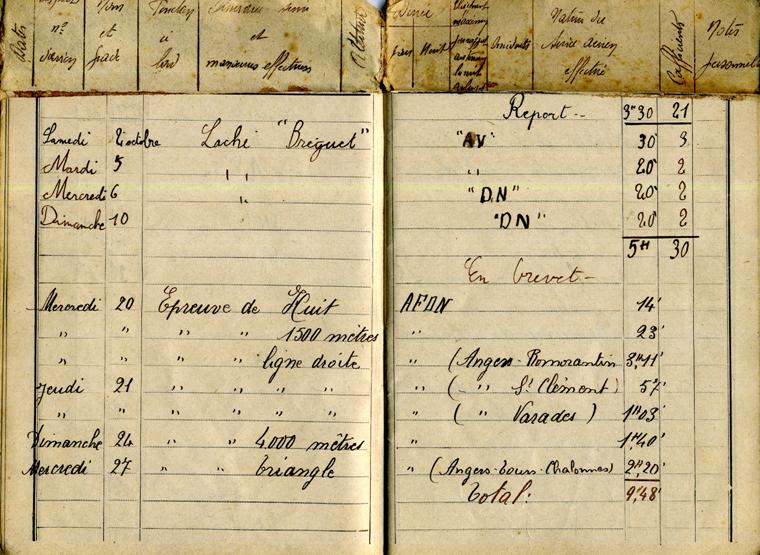 Dates nº d'avion Nom et grade Fonction à bord et manœuvres effectuées Altitude
Durée Jour Nuit Accidents Nature du service aérien effectué Notes personnelles
Report -- 3ʰ30 21
Samedi 2 octobre Laché "Bréguet" "AV" 30' 3
Mardi 5 " " " 20' 2
Mercredi 6 " "DN" 20' 2
Dimanche 10 "DN" 20' 2
5ᴴ 30
En brevet -
Mercredi 20 Epreuve de Huit AFDN 14'
" " " " 1500 mètres " 23'
" " " " ligne droite " (Angers-Romorantin 3ʰ,11'
Jeudi 21 " " " " " ( " St Clément) 57'
" " " " " " " ( " Varades) 1ʰ03'
Dimanche 24 " " 4000 mètres " 1ʰ,40'
Mercredi 27 " " triangle " (Angers-Tours-Chalonnes) 2ʰ,20'
Total: 9ʰ,48'